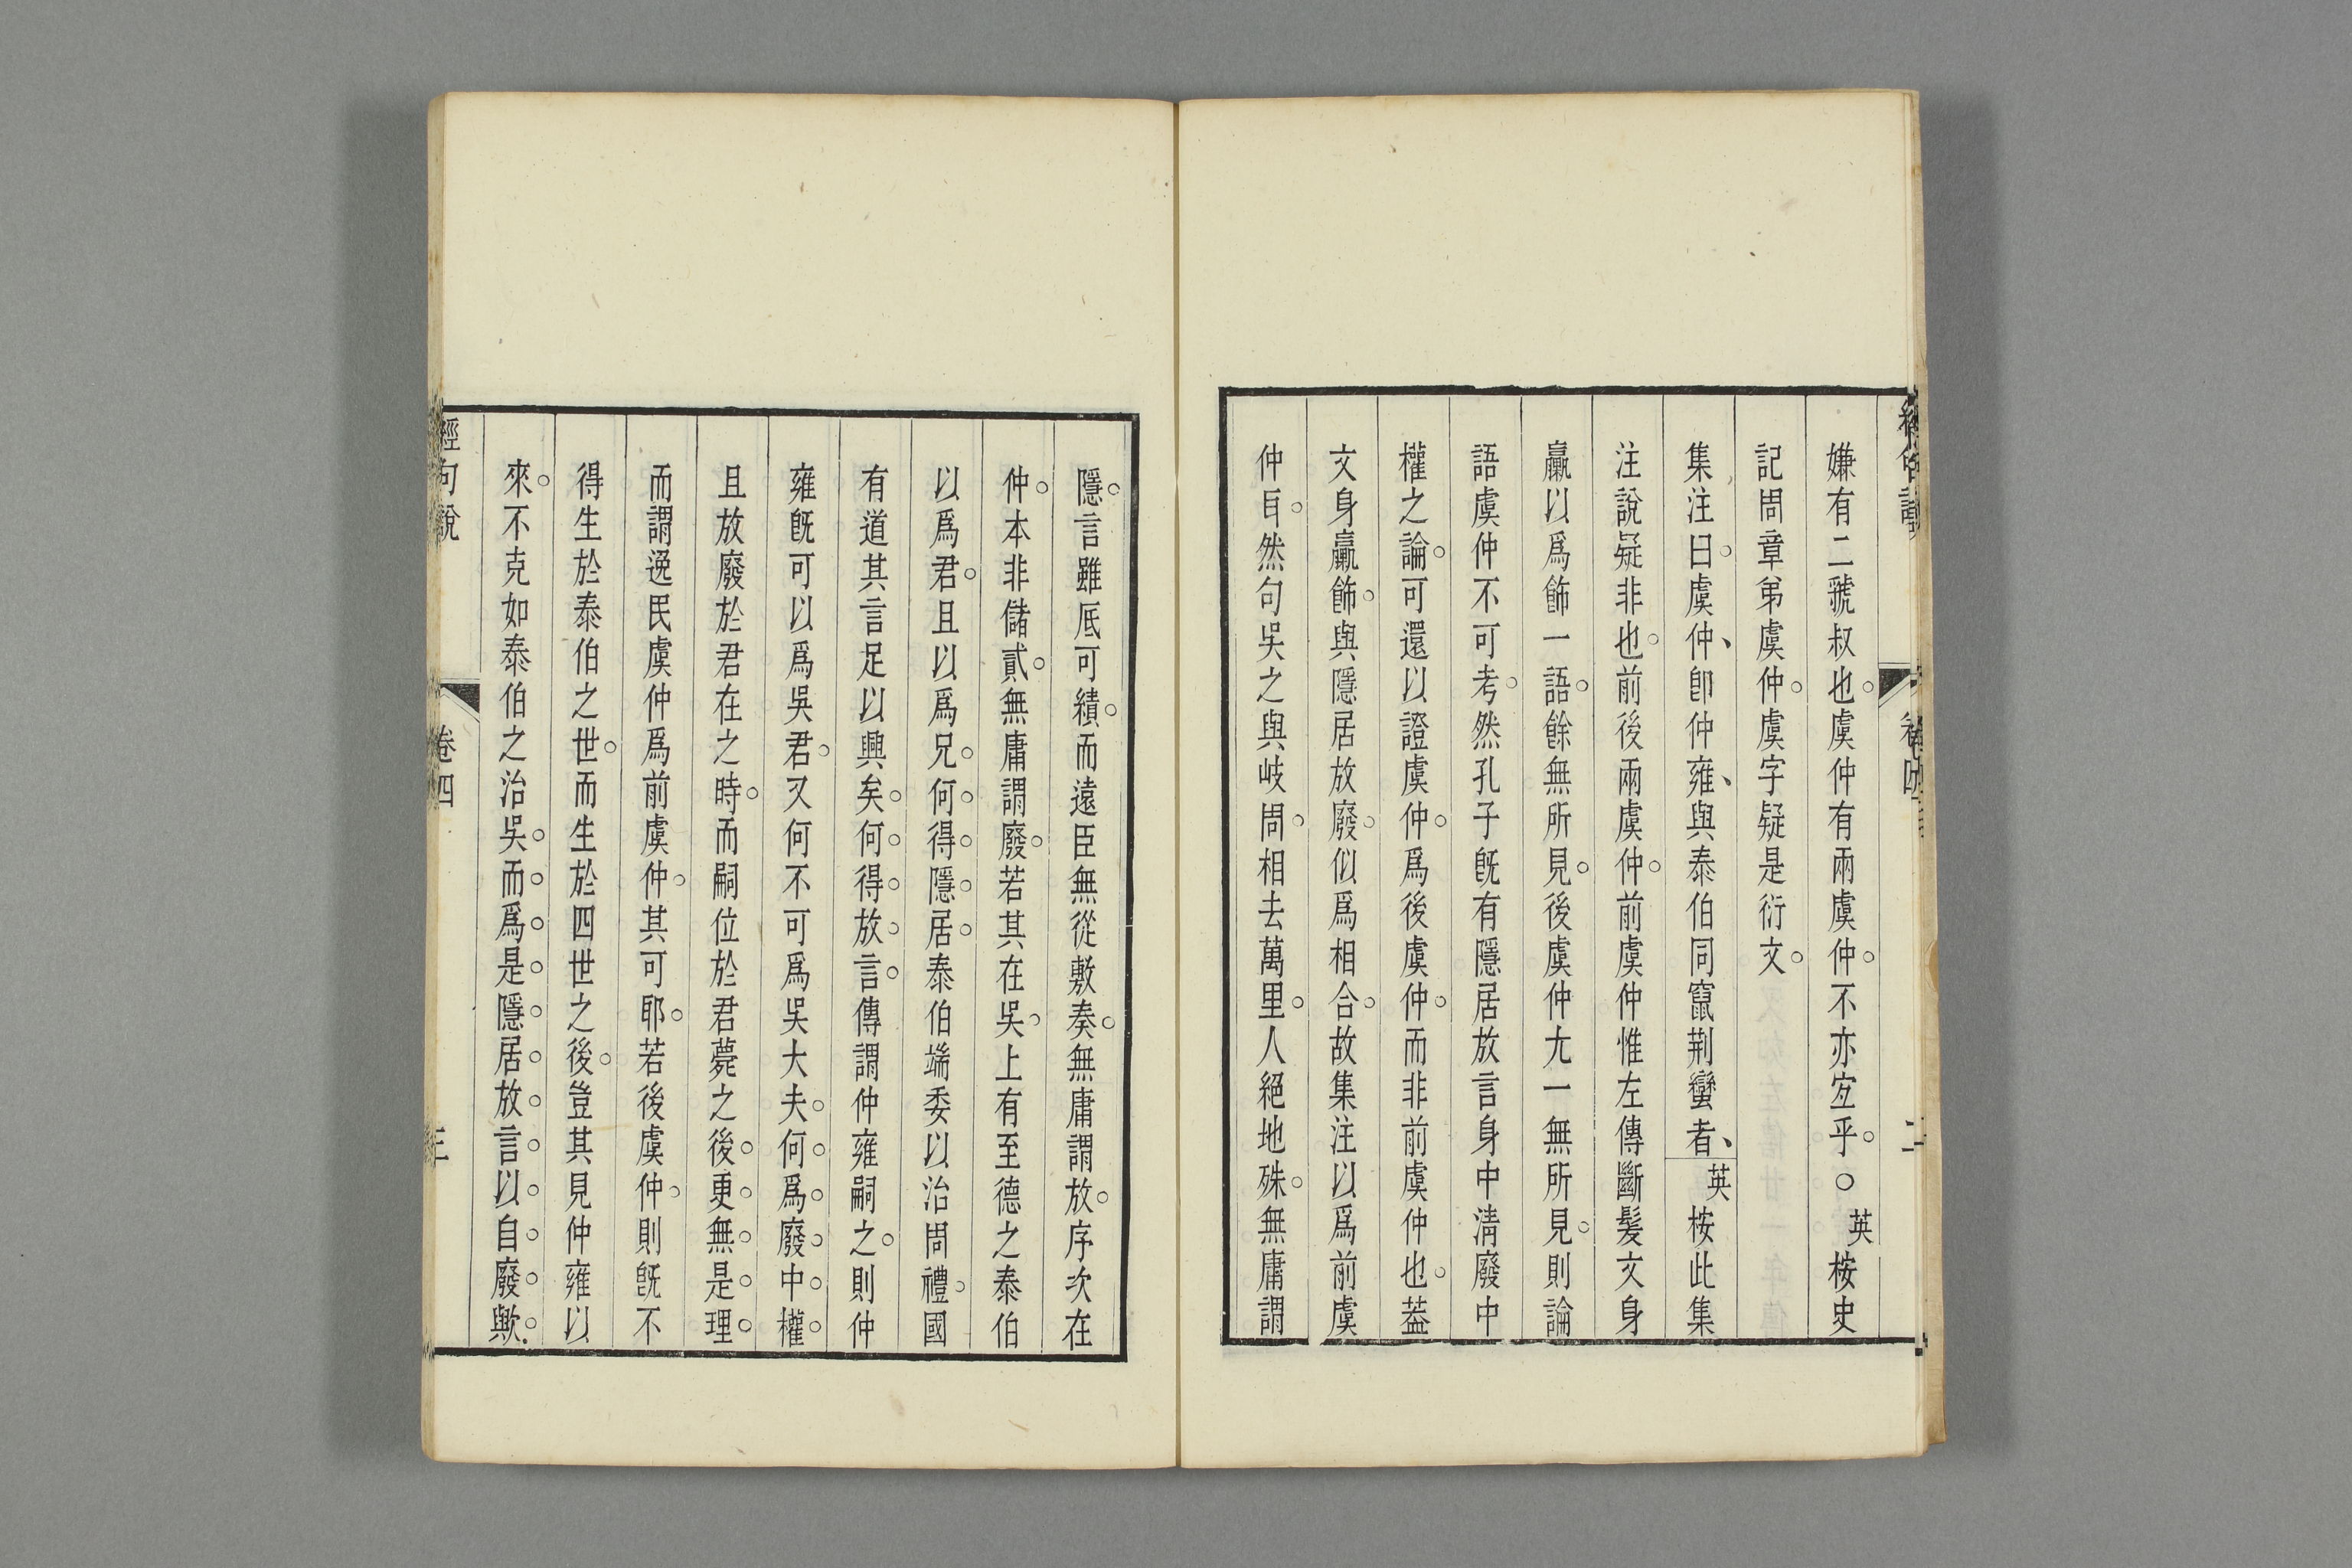 嫌有二虢叔也虞仲有兩虞仲不亦宐乎○英桉史
記周章弟虞仲虞字疑是衍文
集注曰虞仲卽仲雍與泰伯同竄荆蠻者英桉此集
注說疑非也前後兩虞仲前虞仲惟左傳斷髮文身
臝以爲飾一語餘無所見後虞仲尢一無所見則論
語虞仲不可考然孔子旣有隱居放言身中淸廢中
權之論可還以證虞仲爲後虞仲而非前虞仲也葢
文身臝飾與隱居放廢似爲相合故集注以爲前虞
仲耳然句吳之與岐周相去萬里人絕地殊無庸謂
隱言雖厎可績而遠臣無從敷奏無庸謂放序次在
仲本非儲貳無庸謂廢若其在吳上有至德之泰伯
以爲君且以爲兄何得隱居泰伯端委以治周禮國
有道其言足以興矣何得放言傳謂仲雍嗣之則仲
雍旣可以爲吳君又何不可爲吳大夫何爲廢中權
且放廢於君在之時而嗣位於君薨之後更無是理
而謂逸民虞仲爲前虞仲其可耶若後虞仲則旣不
得生於泰伯之世而生於四世之後豈其見仲雍以
來不克如泰伯之治吳而爲是隱居放言以自廢歟
經句說
卷四
三